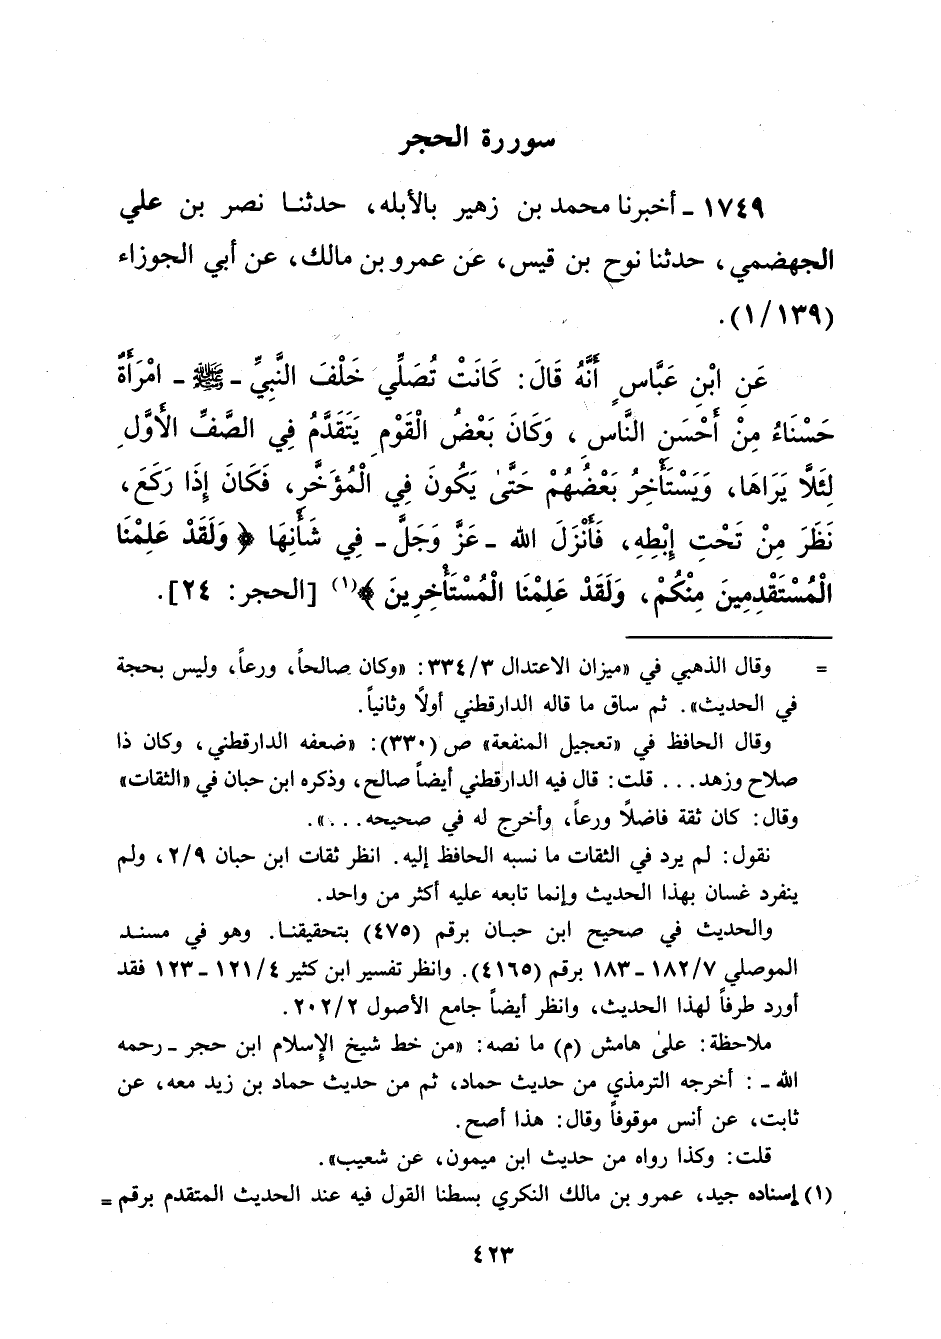 سوررة الحجر
١٧٤٩ ـ أخبرنا محمد بن زهير بالأبله، حدثنا نصر بن علي
الجهضمي، حدثنا نوح بن قيس، عن عمرو بن مالك، عن أبي الجوزاء
(١/١٣٩).
عَنِ ابْنِ عَبَّاسٍ أَنَّهُ قَالَ: كَانَتْ تُصَلِّي خَلْفَ النَّبِيِّ ـ ﷺ ـ امْرَأَةٌ
حَسْنَاءُ مِنْ أَحْسَنِ النَّاسِ، وَكَانَ بَعْضُ الْقَوْمِ يَتَقَدَّمُ فِي الصَّفِّ الْأَوَّلِ
لِئَلَّا يَرَاهَا، وَيَسْتَأْخِرُ بَعْضُهُمْ حَتَّىٰ يَكُونَ فِي الْمُؤَخَّرِ، فَكَانَ إِذَا رَكَعَ،
نَظَرَ مِنْ تَحْتِ إِبْطِهِ، فَأَنْزَلَ الله ـ عَزَّ وَجَلَّ ـ فِي شَأْنِهَا ﴿وَلَقَدْ عَلِمْنَا
الْمُسْتَقْدِمِينَ مِنْكُمْ، وَلَقَدْ عَلِمْنَا الْمُسْتَأْخِرِينَ﴾(١) [الحجر: ٢٤].
= وقال الذهبي في «ميزان الاعتدال ٣٣٤/٣: «وكان صالحاً، ورعاً، وليس بحجة
في الحديث». ثم ساق ما قاله الدارقطني أولاً وثانياً.
وقال الحافظ في «تعجيل المنفعة» ص (٣٣٠): «ضعفه الدارقطني، وكان ذا
صلاح وزهد... قلت: قال فيه الدارقطني أيضاً صالح، وذكره ابن حبان في «الثقات»
وقال: كان ثقة فاضلاً ورعاً، وأخرج له في صحيحه...».
نقول: لم يرد في الثقات ما نسبه الحافظ إليه. انظر ثقات ابن حبان ٢/٩، ولم
ينفرد غسان بهذا الحديث وإنما تابعه عليه أكثر من واحد.
والحديث في صحيح ابن حبان برقم (٤٧٥) بتحقيقنا. وهو في مسند
الموصلي ١٨٢/٧ ـ ١٨٣ برقم (٤١٦٥). وانظر تفسير ابن كثير ١٢١/٤ ـ ١٢٣ فقد
أورد طرفاً لهذا الحديث، وانظر أيضاً جامع الأصول ٢٠٢/٢.
ملاحظة: علىٰ هامش (م) ما نصه: «من خط شيخ الإسلام ابن حجر ـ رحمه
الله ـ : أخرجه الترمذي من حديث حماد، ثم من حديث حماد بن زيد معه، عن
ثابت، عن أنس موقوفاً وقال: هذا أصح.
قلت: وكذا رواه من حديث ابن ميمون، عن شعيب».
(١) إسناده جيد، عمرو بن مالك النكري بسطنا القول فيه عند الحديث المتقدم برقم =
٤٢٣